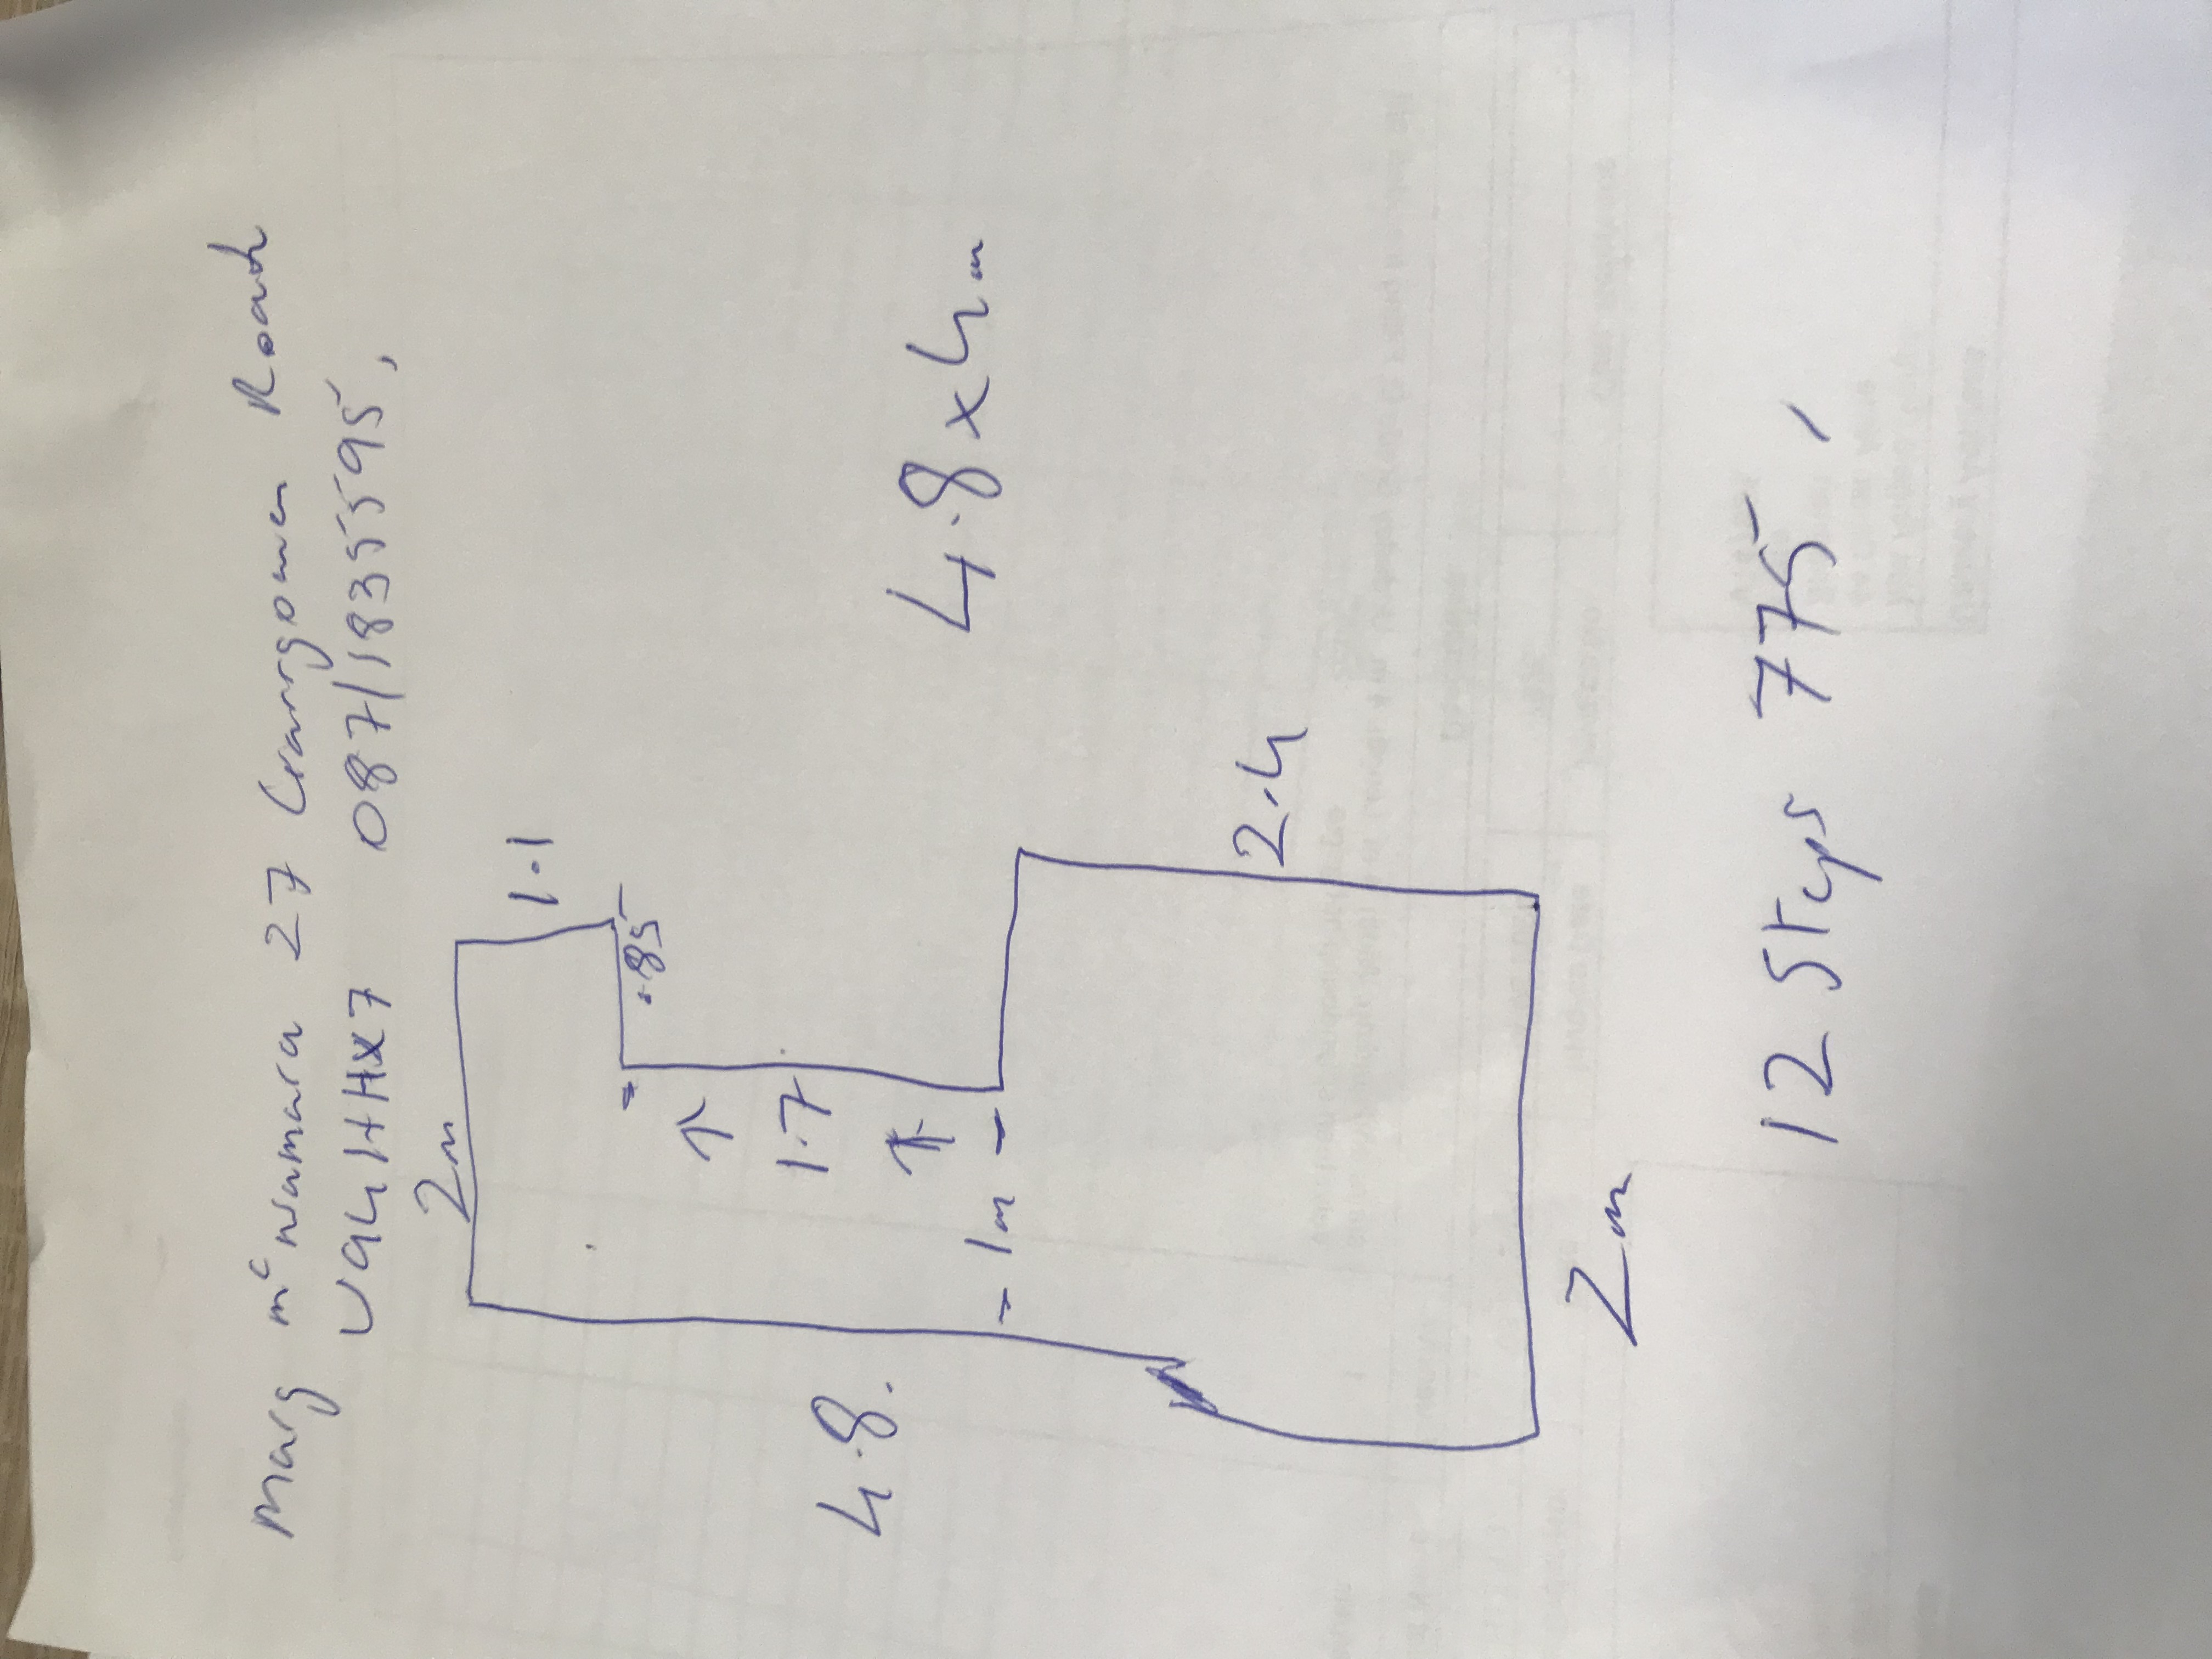 Marg mc Namara 27 Cranngowen Road
V94HHX7 087/1835595,
2m
1.1
.85
1.7
4.8.
- 1m -
4.8 x 4m
2.4
2m
12 Steps 775,